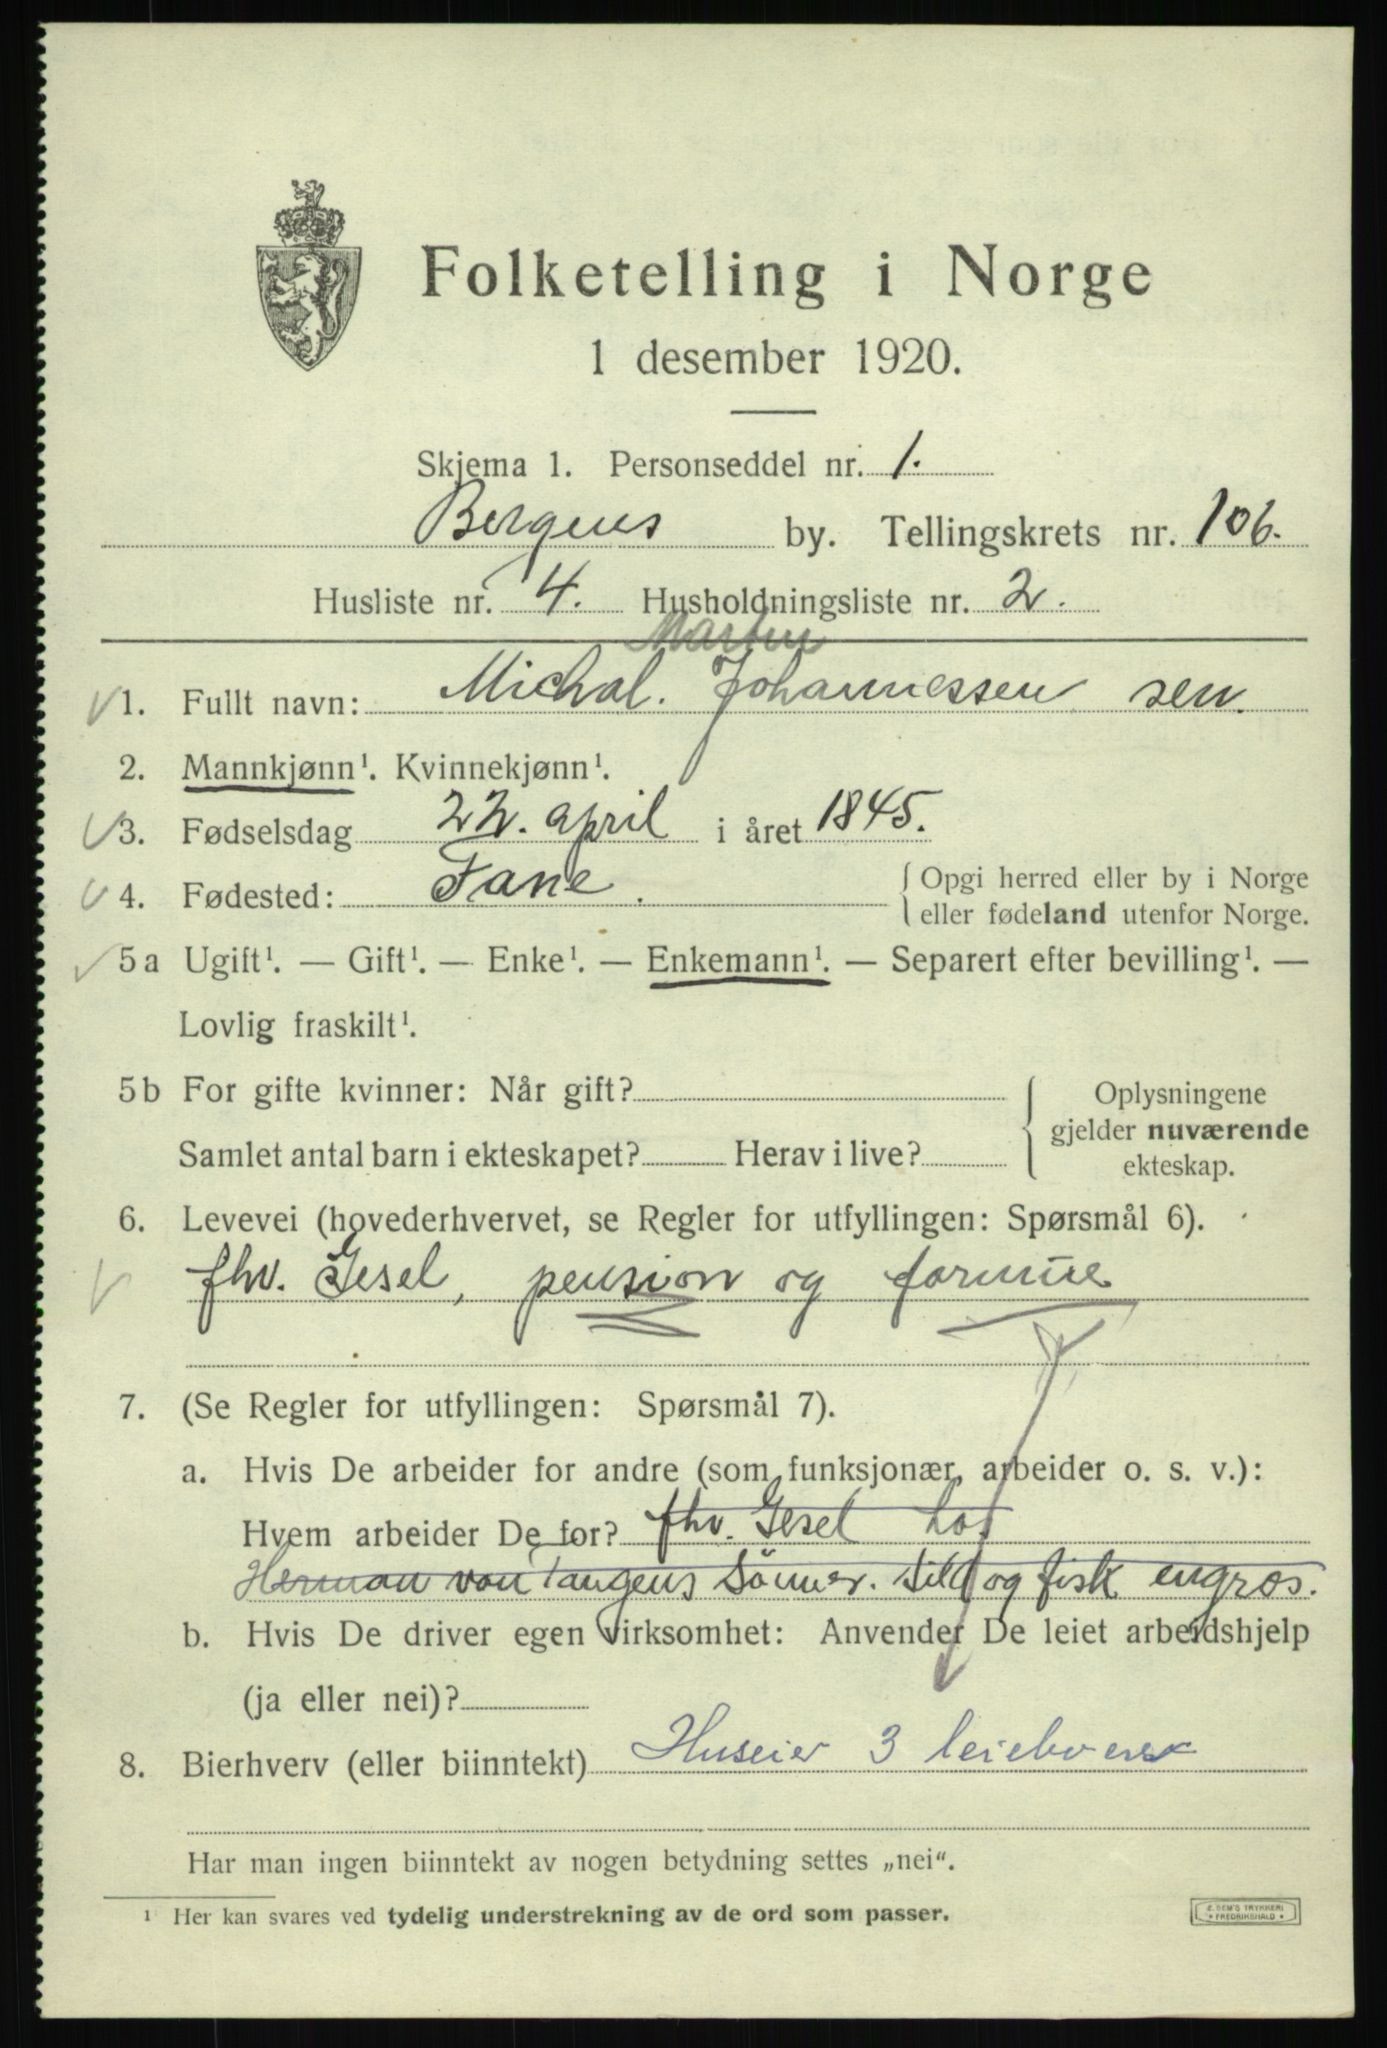 Folketelling i Norge
1 desember 1920.
Skjema 1. Personseddel nr. 1.
Bergens by. Tellingskrets nr. 106.
Husliste nr. 4. Husholdningsliste nr. 2.
Martin
1. Fullt navn: Michal. Johannessen sen.
2. Mannkjønn¹. Kvinnekjønn¹.
3. Fødselsdag 22. april i året 1845.
4. Fødested: Fane. { Opgi herred eller by i Norge
eller fødeland utenfor Norge.
5a Ugift¹. — Gift¹. — Enke¹. — Enkemann¹. — Separert efter bevilling¹. —
Lovlig fraskilt¹.
5b For gifte kvinner: Når gift? { Oplysningene
gjelder nuværende
Samlet antal barn i ekteskapet? Herav i live? ekteskap.
6. Levevei (hovederhvervet, se Regler for utfyllingen: Spørsmål 6).
fhv. Gesel, pension og formue
7. (Se Regler for utfyllingen: Spørsmål 7).
a. Hvis De arbeider for andre (som funksjonær, arbeider o. s. v.):
Hvem arbeider De for? fhv. Gesel hos
Herman von Tangens Sønner. Sild og fisk engros.
b. Hvis De driver egen virksomhet: Anvender De leiet arbeidshjelp
(ja eller nei)?
8. Bierhverv (eller biinntekt) Huseier 3 leieboere
Har man ingen biinntekt av nogen betydning settes „nei“.
¹ Her kan svares ved tydelig understrekning av de ord som passer.
E. SEM'S TRYKKERI
• FREDRIKSHALD •